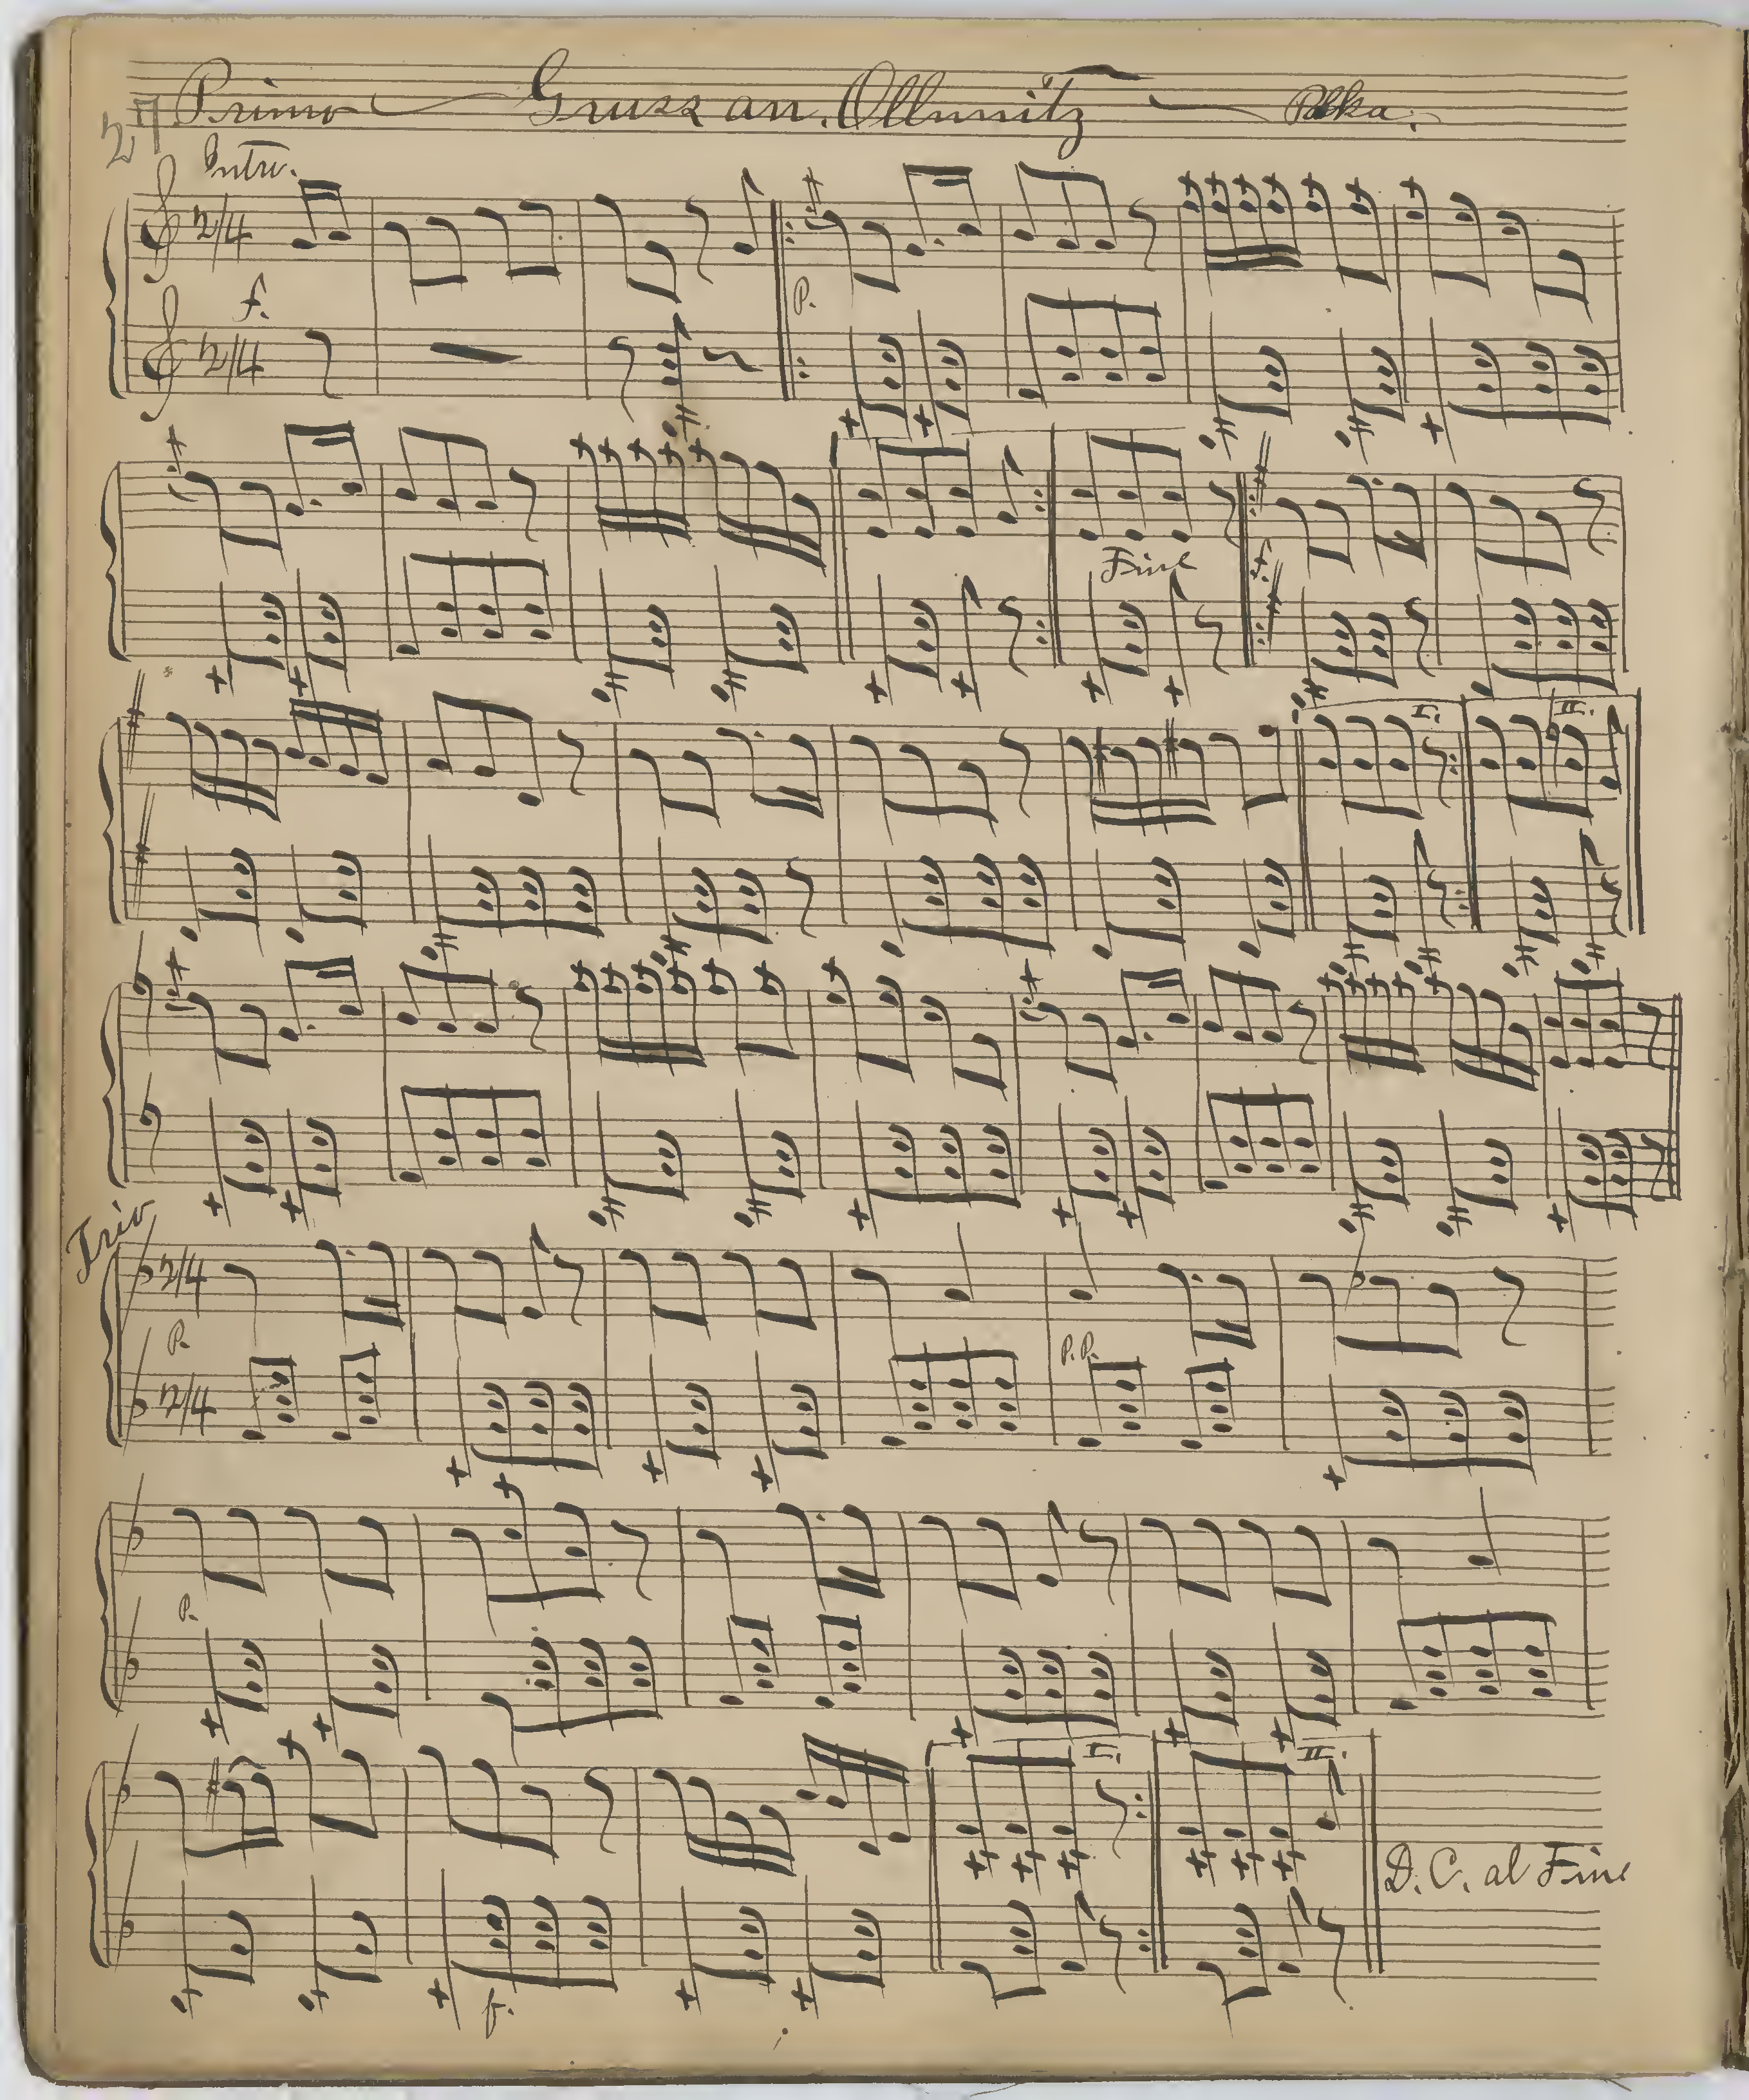 27 Primo Gruss an Ollmütz Polka.
Intro.
2/4
f. P.
2/4
Fine f.
I. II.
Trio
2/4
P. P.P.
2/4
P.
I. II.
D.C. al Fine
f.